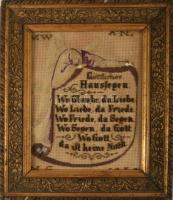 MW AN.
Göttlicher
Haussegen.
Wo Glaube, da Liebe,
Wo Liebe, da Friede
Wo Friede, da Segen,
Wo Segen, da Gott
Wo Gott,
da ist keine Noth.